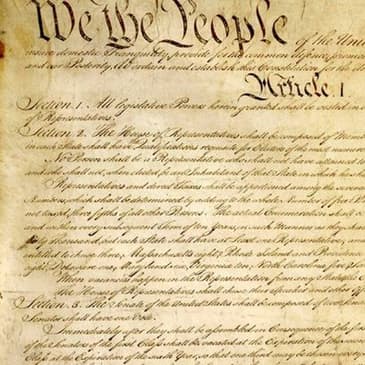 We the People of the Unit
insure domestic Tranquility, provide for the common defence, promo
and our Posterity, do ordain and establish this Constitution for the Un
Article. I.
Section. 1. All legislative Powers herein granted shall be vested in a
of Representatives.
Section. 2. The House of Representatives shall be composed of Mem
in each State shall have the Qualifications requisite for Electors of the most numero
No Person shall be a Representative who shall not have attained to
and who shall not, when elected, be an Inhabitant of that State in which he sha
Representatives and direct Taxes shall be apportioned among the severa
Numbers, which shall be determined by adding to the whole Number of free P
not taxed, three fifths of all other Persons. The actual Enumeration shall
and within every subsequent Term of ten Years, in such Manner as they sha
thirty Thousand, but each State shall have at Least one Representative; and
entitled to chuse three, Massachusetts eight, Rhode Island and Providence
eight, Delaware one, Maryland six, Virginia ten, North Carolina five, So
When vacancies happen in the Representation from any State, the E
The House of Representatives shall chuse their Speaker and other off
Section. 3. The Senate of the United States shall be composed of two Sen
Senator shall have one Vote.
Immediately after they shall be assembled in Consequence of the first
of the Senators of the first Class shall be vacated at the Expiration of the secon
Class at the Expiration of the sixth Year, so that one third may be chosen every